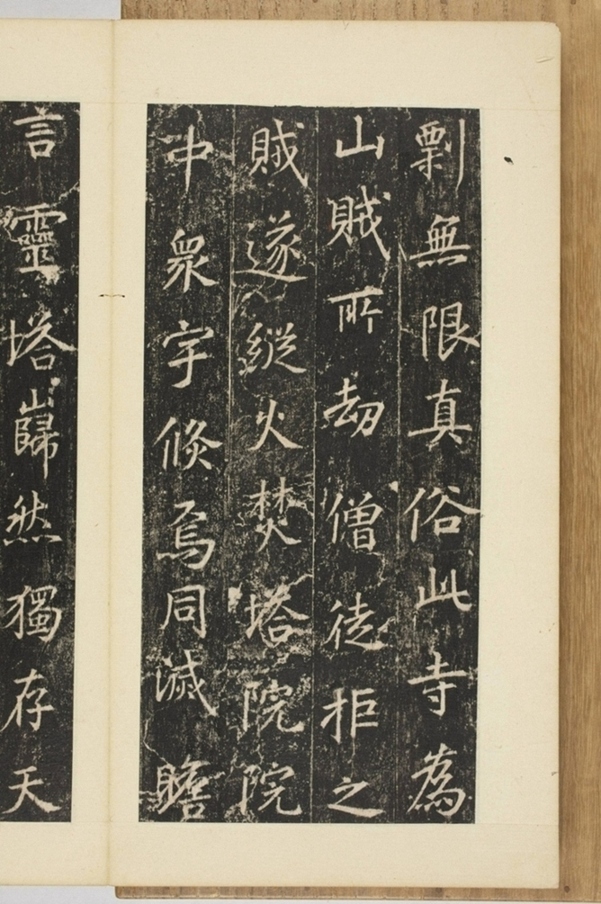 剽無限真俗此寺為
山賊所劫僧徒拒之
賊遂縱火焚塔院院
中衆宇倐焉同滅瞻
言靈塔巋然獨存天